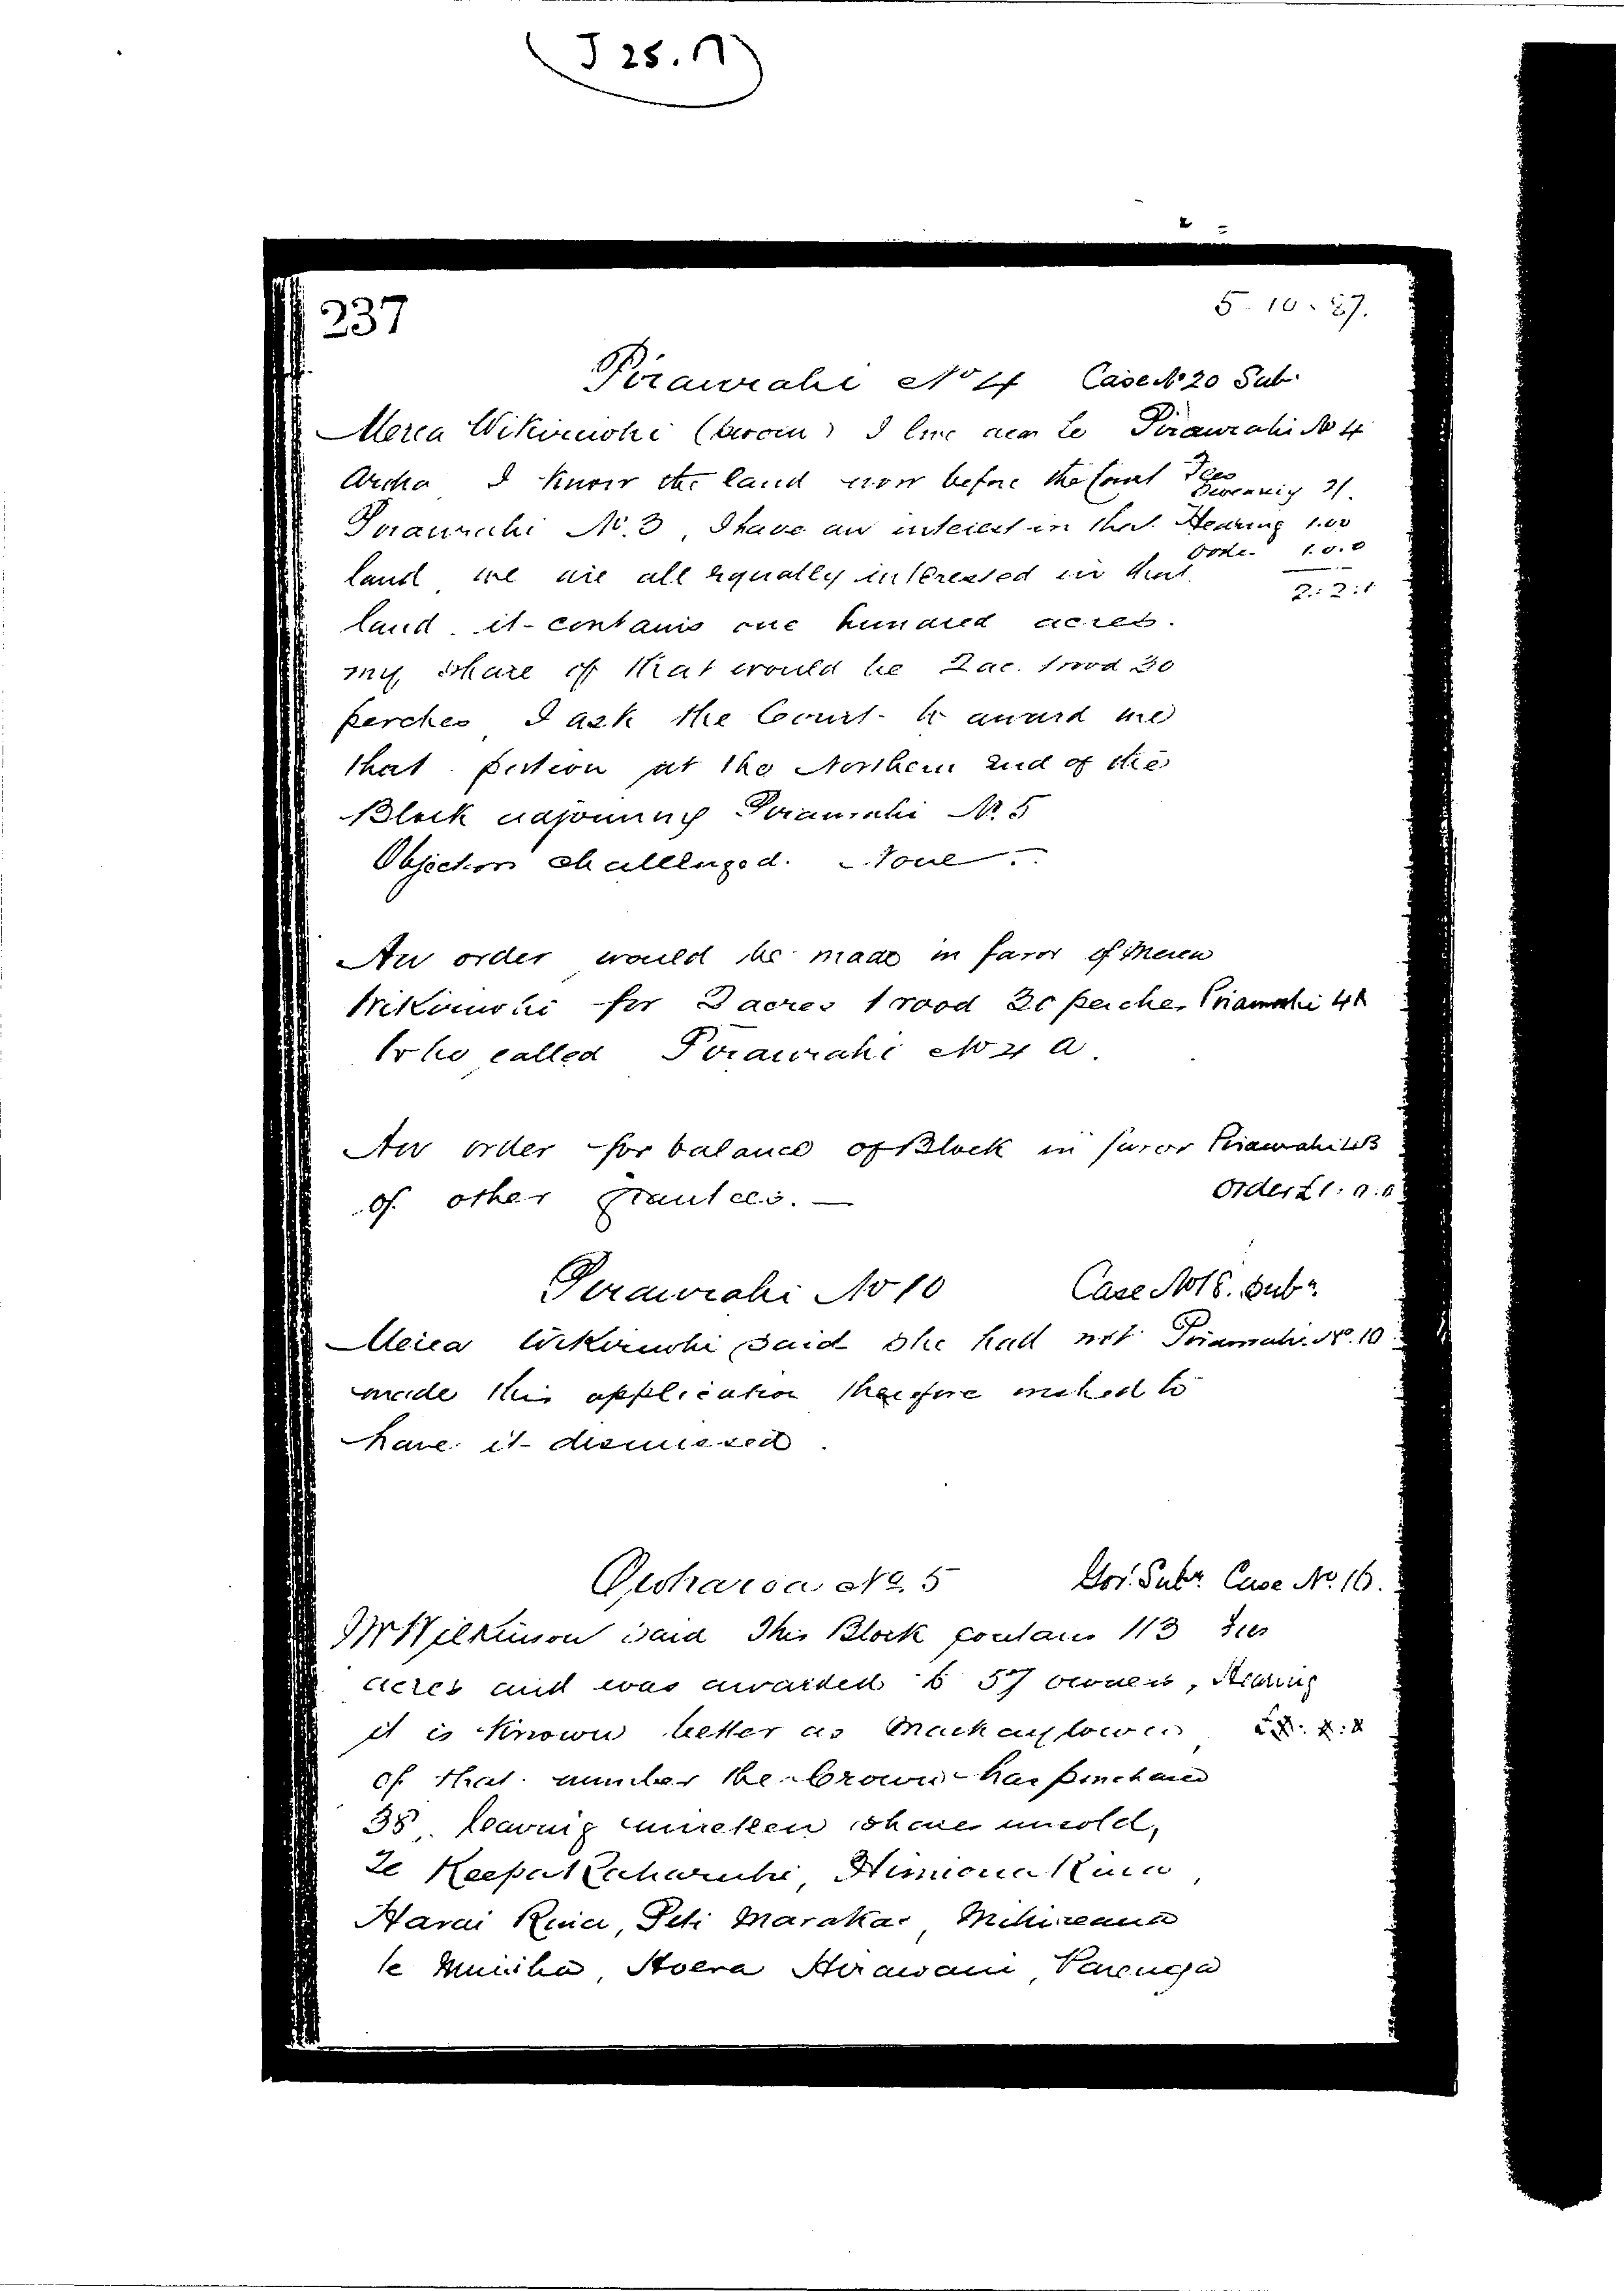 J 25.
237
5. 10. 87.
Piraurahi No 4 Case No 20 Sub.
Merea Wikiriwhi (sworn) I live Te Piraurahi No 4
Aroha I know the land now before the Court Fees
Swearing 2/.
Piraurahi No. 3, I have an interest in that Hearing 1.00
land we are all equally interested in that Order 1.0.0
2:2:
land. it contains one hundred acres.
my share of that would be 2 ac. 1 rood 20
perches I ask the Court to award me
that portion at the Northern end of the
Block adjoining Piraurahi No. 5
Objectors challenged. None.
An order would be made in favor of Merea
Wikiriwhi for 2 acres 1 rood 20 perches Piraurahi 4A
to be called Piraurahi No 4 A.
An order for balance of Block in favor Piraurahi 4B
of other grantees. —
Order £1:
Piraurahi No 10 Case No 18. Subn
Merea Wikiriwhi said she had not Piraurahi No. 10
made this application therefore wished to
have it dismissed.
No. 5 Subn Case No. 16.
Mr Wilkinson said This Block contains 113 Fees
acres and was awarded to 57 owners, Hearing
it is known better as Mackaytown
of that number the Crown has purchased
38. leaving nineteen shares unsold,
Te Keepa Rahuruhi, Rina,
Harai Rina, Peti Marakai, Mihireana
te Muniha, Hoera Hirawani, Parenga